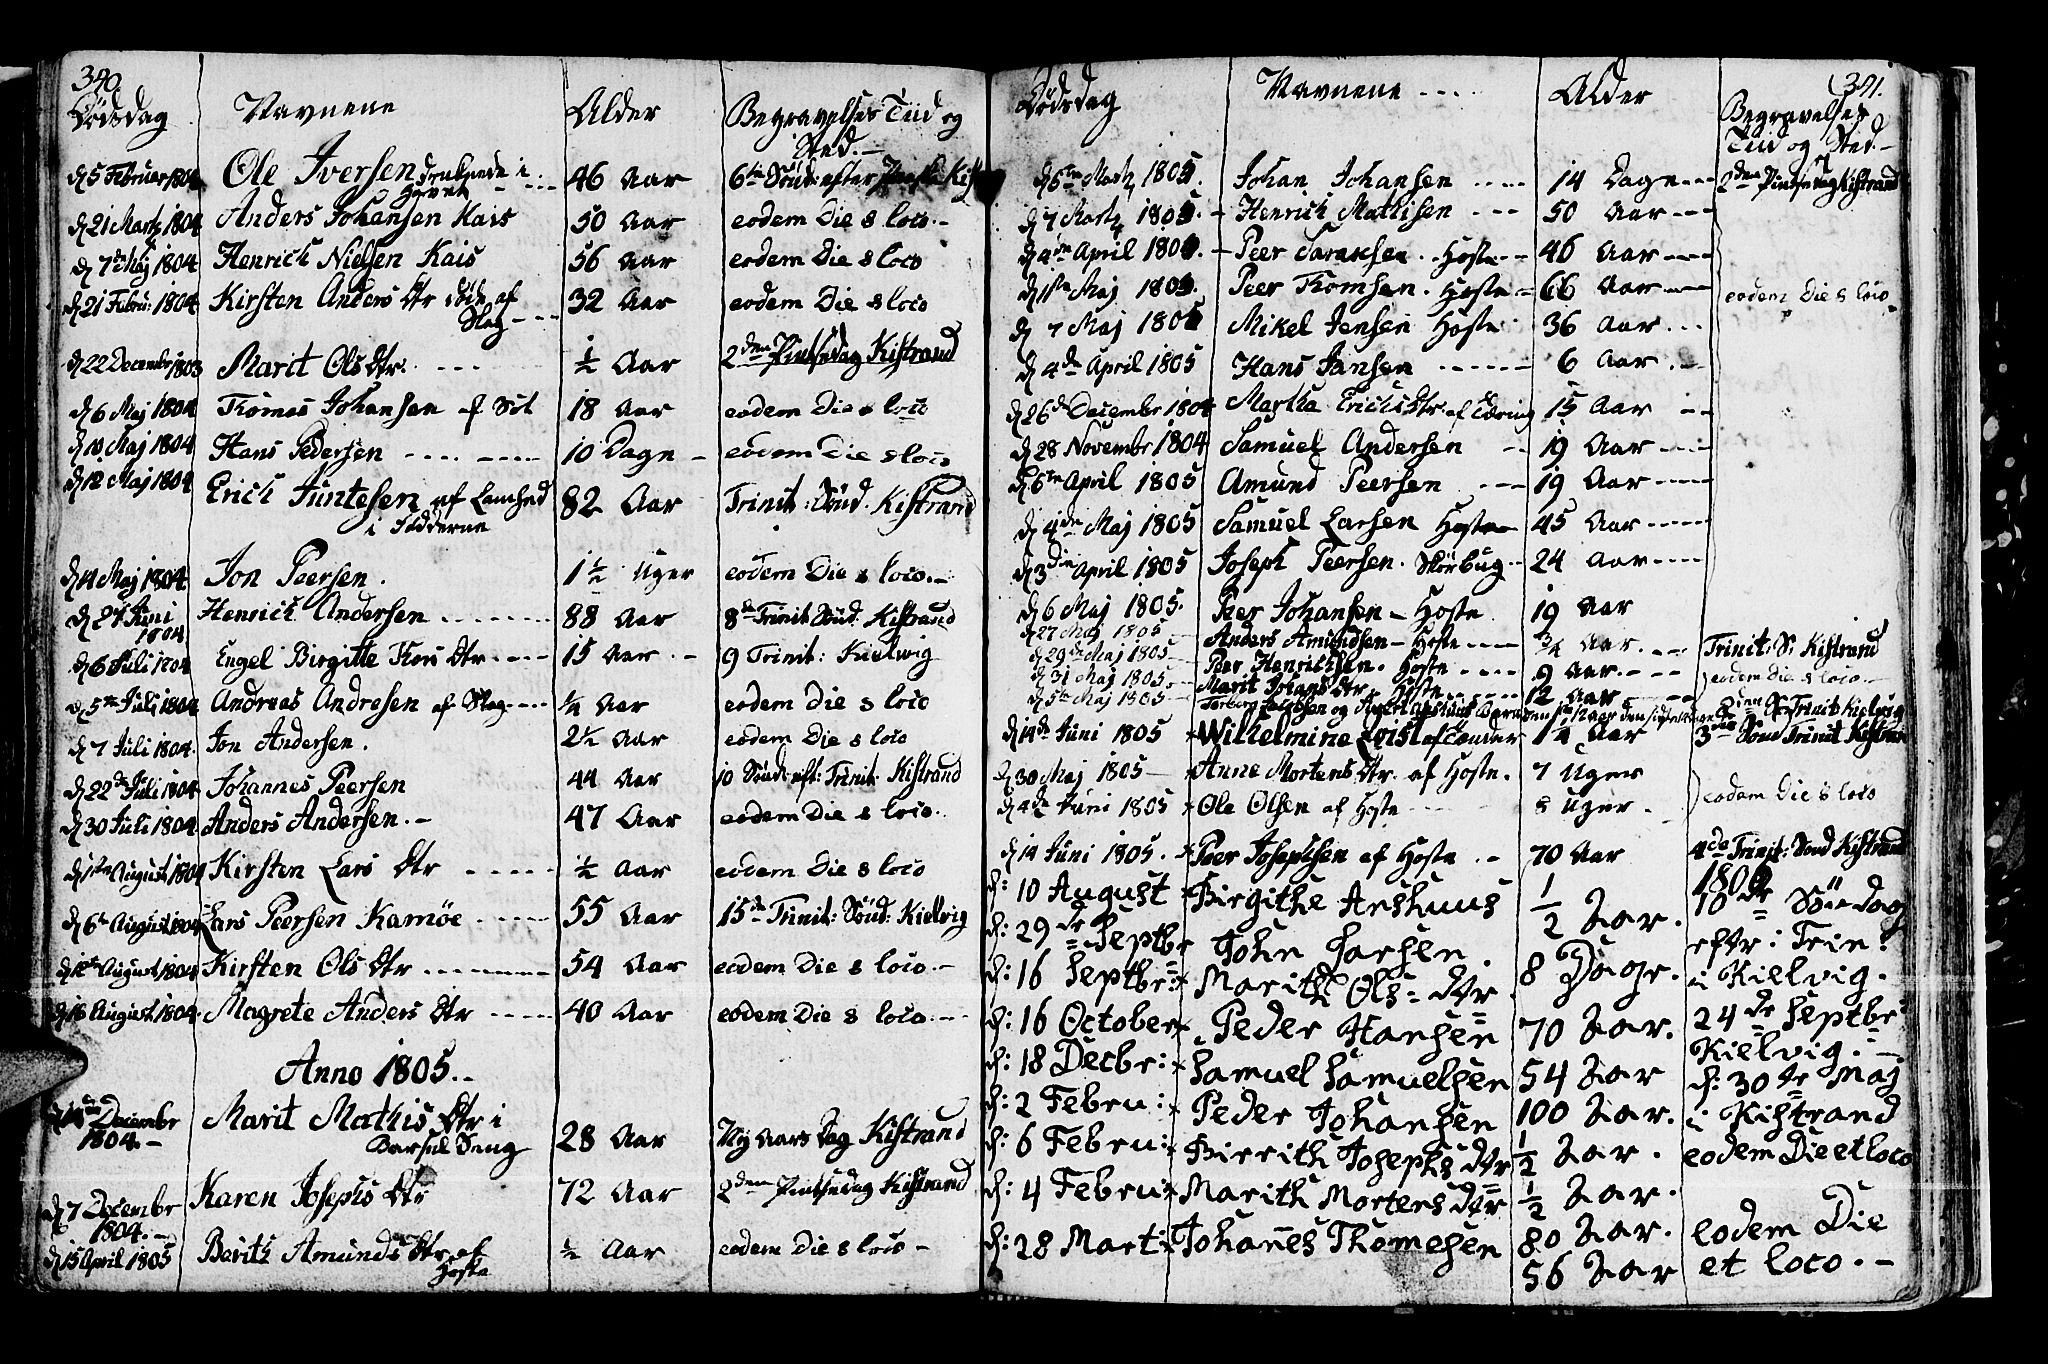 340.
Dödsdag Navnene Alder Begravelses Tiid og
Sted.
d 5 Februar 1804 Ole Iversen druknede i 46 Aar 6te Sönd: efter
Havet
d 21 Martz 1804 Anders Johansen Kais 50 Aar eodem Die & loco.
d 7de Maj 1804 Henrich Nielsen Kais 56 Aar eodem Die & loco
d 21 Febru: 1804 Kirsten Anders Dtr döde af 32 Aar eodem Die & loco
Slag
d 22 Decembr 1803 Marit Ols Dtr. ½ Aar 2den Pintsedag Kistrand
d 6 Maj 1804 Thomas Johansen af Söl 18 Aar eodem Die & loco
d 10 Maj 1804 Hans Pedersen 10 Dage eodem Die & loco
d 12 Maj 1804 Erich Juntesen af Lamhed 82 Aar Trinit: Sönd. Kistrand
i Födderne
d 14 Maj 1804 Jon Peersen. 1½ Uger eodem Die & loco.
d 27 Juni Henrich Andersen 88 Aar 8de Trinit Sönd. Kistrand
1804
d 6 Juli 1804 Engel Birgitte Thors Dtr 15 Aar 9 Trinit: Kielwig
d 5te Juli 1804 Andreas Andresen af Slag ¼ Aar eodem Die & loco
d 7 Juli 1804. Jon Andersen. 2½ Aar eodem Die & loco
d 22de Juli 1804 Johannes Peersen 44 Aar 10 Sönd: eft: Trinit: Kistrand
d 30 Juli 1804 Anders Andersen. 47 Aar eodem Die & loco.
d 1ste August 1804 Kirsten Lars Dtr ½ Aar eodem Die & loco
d 6te August 1804 Lars Peersen Kamöe 55 Aar 15de Trinit: Sönd: Kielvig
d 12te August 1804 Kirsten Ols Dtr 54 Aar eodem Die & loco.
d 16 August 1804 Magrete Anders Dtr 40 Aar eodem Die & loco.
Anno 1805.
Decembr Marit Mathis Dtr i 28 Aar Nÿ Aars Dag Kistrand
1804. Barsel Seng
d 7 Decembr Karen Josephs Dtr 72 Aar 2den Pintsedag Kistrand
1804.
d 15 April 1805 Berith Amunds Dtr af ½ Aar eodem Die & loco
Hoste
341.
Dödsdag Navnene Alder Begravelses
Tiid og Sted.
d 6te Martz 1805. Johan Johansen 14 Dage 2den Pintsedag Kistrand
d 7 Martz 1805. Henrich Mathisen 50 Aar
d 4de April 1805. Peer Hoste 46 Aar
d 1ste Maj 1805. Peer Thomsen. Hoste 66 Aar eodem Die & loco
d 7 Maj 1805 Mikel Jensen Hoste 36 Aar
d 4de April 1805 Hans Jansen 6 Aar
d 26de Decembr 1804 Martha Erichs Dtr af Tæring 15 Aar
d 28 Novembr 1804 Samuel Andersen 19 Aar
d 6te April 1805 Amund Peersen 19 Aar
d 4de Maj 1805 Samuel Larsen Hoste 45 Aar
d 3die April 1805 Joseph Peersen. Skörbug 24 Aar
d 6 Maj 1805. Peer Johansen Hoste 19 Aar
d 27 Maj 1805 Anders Amundsen Hoste ¾ Aar. Trinit: S: Kistrand
d 29de Maj 1805 Peer Henrichsen. Hoste 9 Aar. eodem Die & loco.
d 31 Maj 1805. Marit Johans Dtr. Hoste 12 Aar
d 5te Maj 1805 2den S: Trinit: Kielvig
d 14de Juni 1805 Wilhelmine Qvist 1¼ Aar 3die Sönd Trinit Kistrand
d 30 Maj 1805 Anne Mortens Dtr. af Hoste. 7 Uger
d 4de Juni 1805 Ole Olsen af Hoste 8 Uger. eodem Die & loco
d 14 Juni 1805. Peer Josephsen af Hoste 70 Aar 4de Trinit: Sönd Kistrand
d: 10 August Birgithe Arshuus ½ Aar. 18de Söndag
d: 29de Septbr John Larsen. 8 Dage. efter: Trin:
d: 16 Septbr: Marith Ols= dtr 70 Aar. i Kielvig.
d: 16 October Peder Hansen 54 Aar 24de Septbr
d: 18 Decbr: Samuel Samuelsen 100 Aar. Kielvig.
d: 2 Febru: Peder Johansen ½ Aar. d: 30te Maj
d: 6 Febru: Birrith Josephs dtr ½ Aar. i Kistrand
d: 4 Febru: Marith Mortens dtr 80 Aar. eodem Die et loco
d: 28 Mart: Johanes Thomesen 56 Aar eodem Die
et loco.